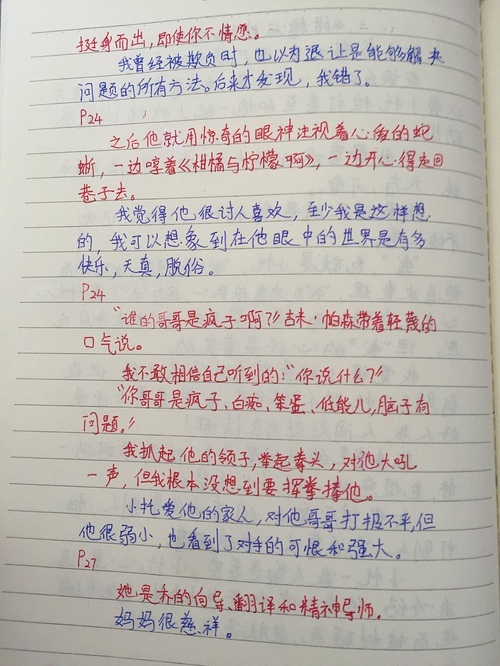 挺身而出，即使你不情愿。
我曾经被欺负时，也以为退让是能够解决
问题的所有方法。后来才发现，我错了。
P24
之后他就用惊奇的眼神注视着心爱的蛇
蜥，一边哼着《柑橘与柠檬啊》，一边开心得走回
巷子去。
我觉得他很讨人喜欢，至少我是这样想
的，我可以想象到在他眼中的世界是有多
快乐，天真，脱俗。
P24
“谁的哥哥是疯子啊？”吉米·帕森带着轻蔑的
口气说。
我不敢相信自己听到的：“你说什么？”
“你哥哥是疯子、白痴、笨蛋、低能儿，脑子有
问题。”
我抓起他的领子，举起拳头，对他大吼
一声，但我根本没想到要挥拳揍他。
小托爱他的家人，对他哥哥打抱不平，但
他很弱小，也看到了对手的可恨和强大。
P27
她是乔的向导、翻译和精神导师。
妈妈很慈祥。